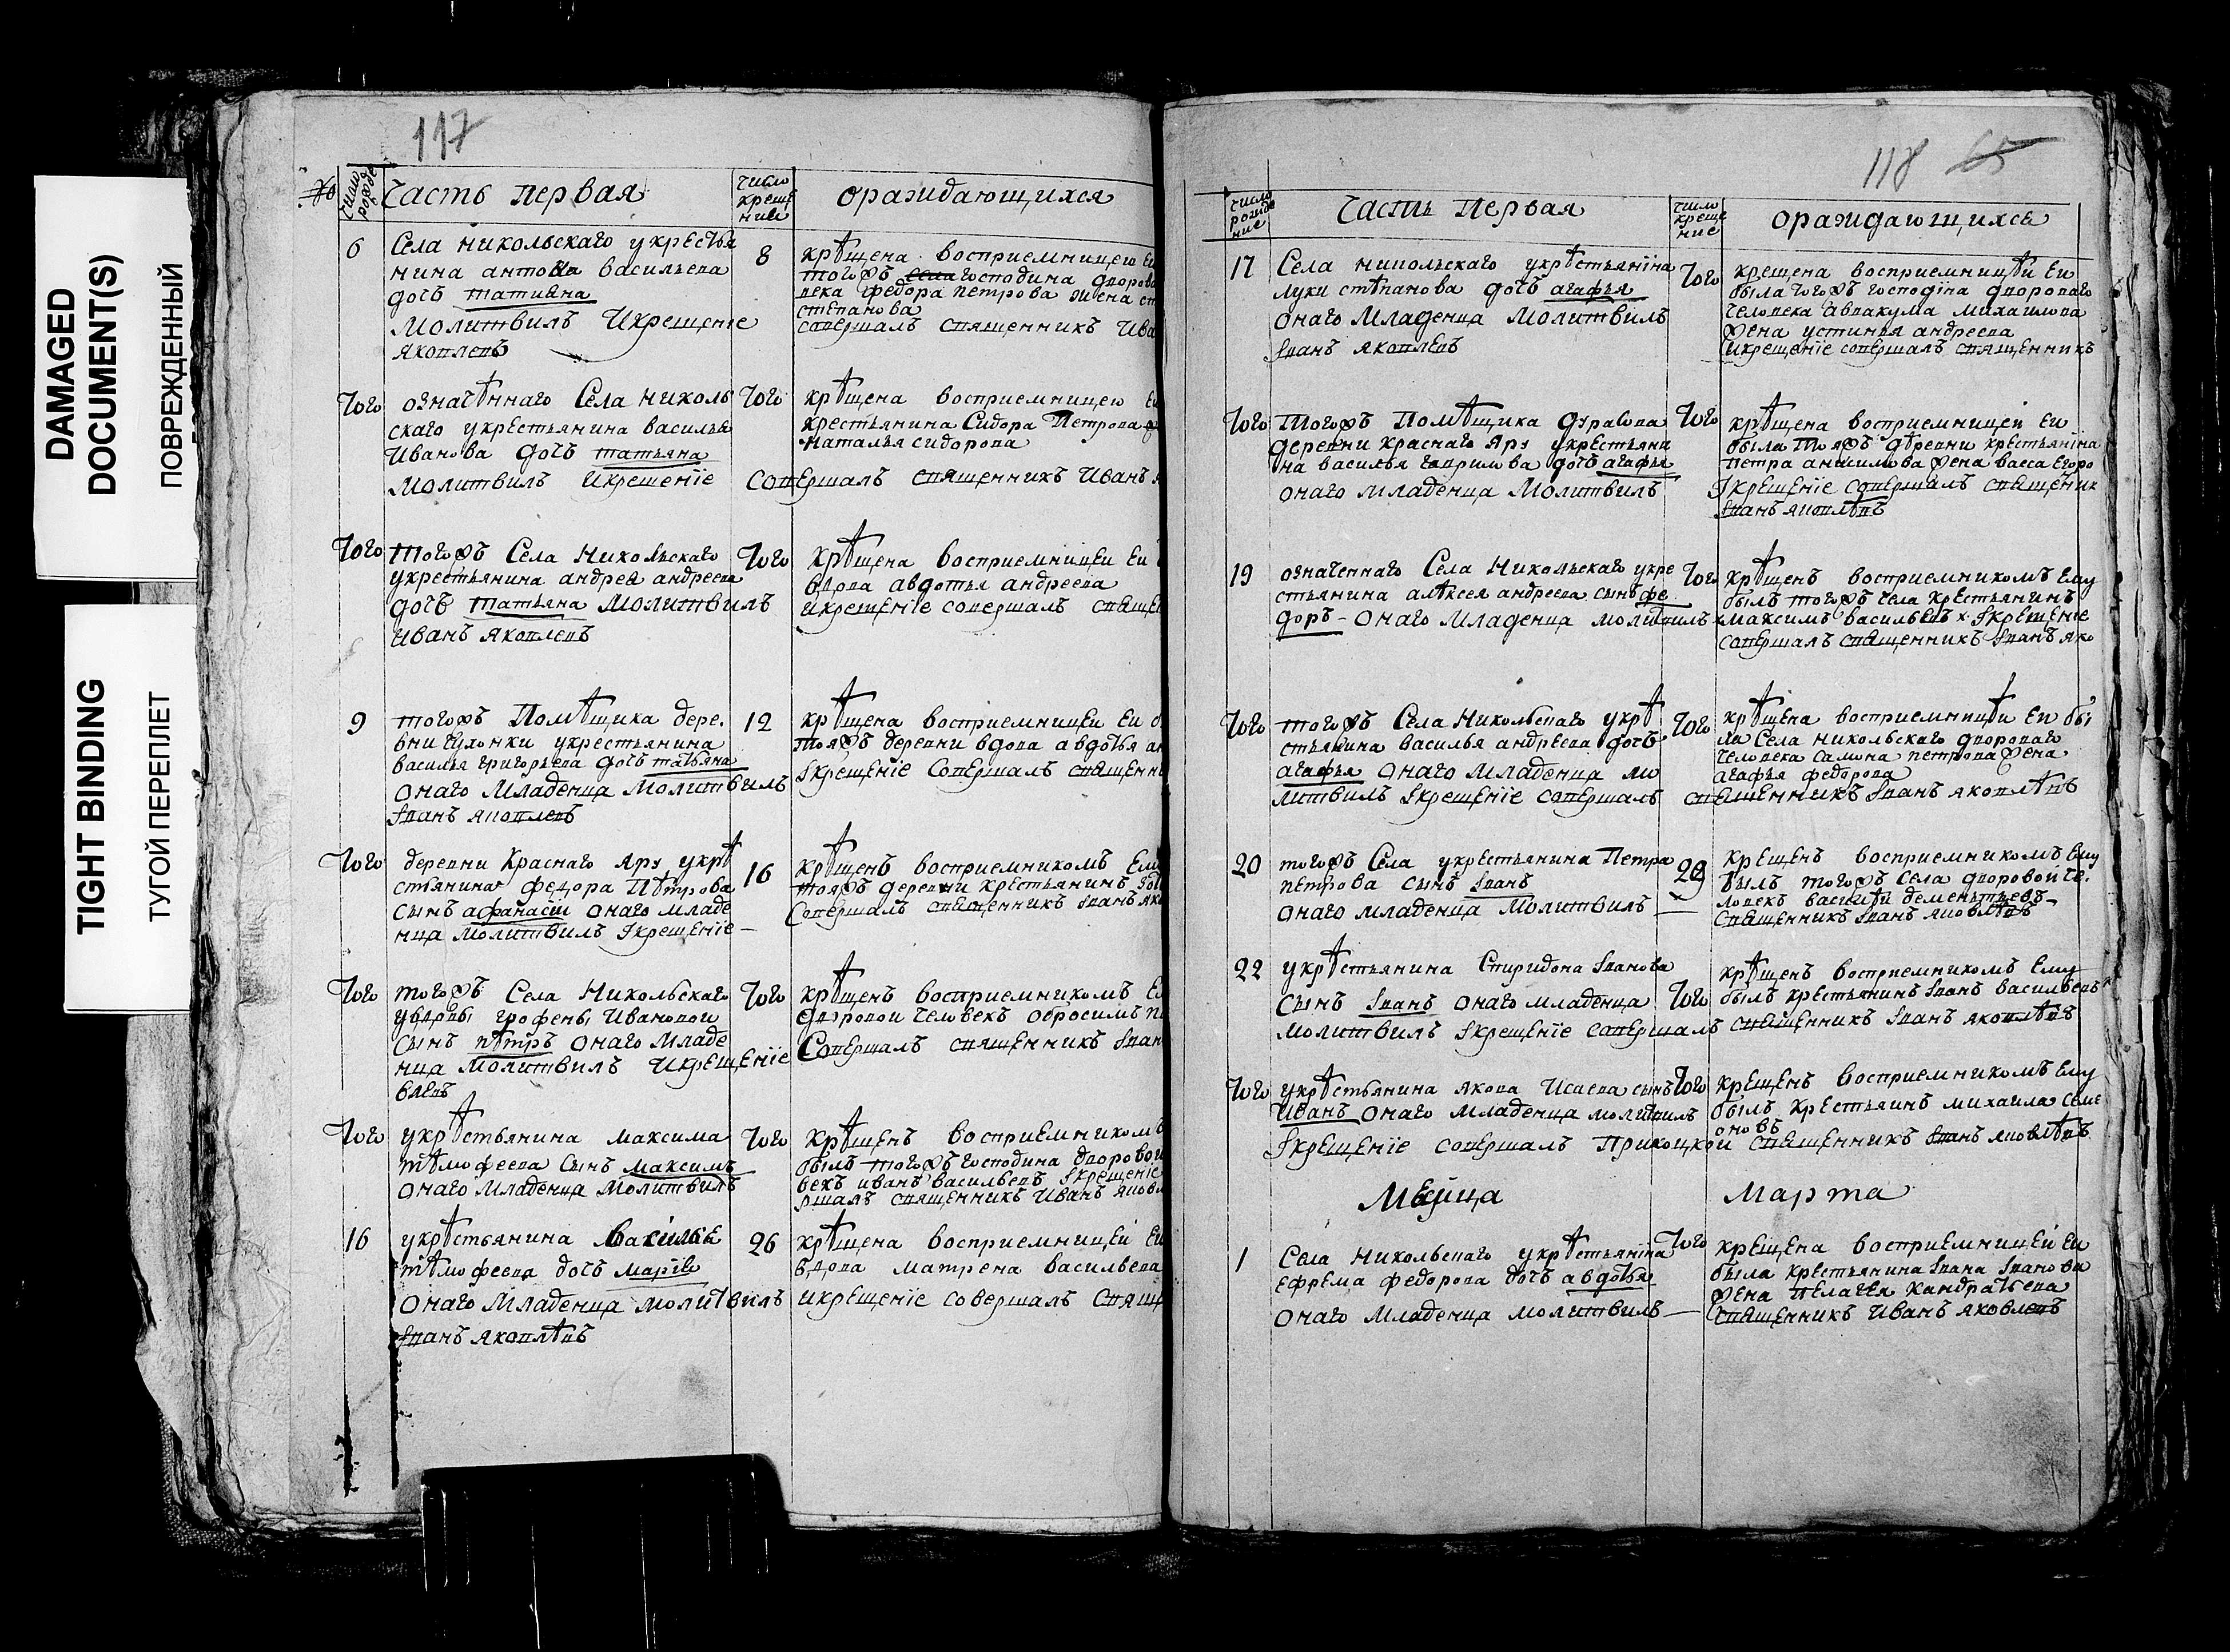 DAMAGED
DOCUMENT(S)
ПОВРЕЖДЕННЫЙ
TIGHT BINDING
ТУГОЙ ПЕРЕПЛЕТ
117
№ число рожде Часть первая число крещение ораждающихся
6 Села никольскаго укрестья
нина антона васильева
дочь татиана
Молитвилъ Икрещение
яковлевъ
8 крѣщена восприемницею еи
тогожъ господина дворова
века федора петрова жена
степанова
совершалъ священникъ Ива
того означѣннаго Села николь
скаго укрестьянина василья
Иванова дочь татьяна
Молитвилъ Икрешение
того крѣщена восприемницею
крестьянина Сидора Петрова
наталья сидорова
совершалъ священникъ Иванъ
того тогожъ Села Никольскаго
укрестьянина андрея андреева
дочь татьяна Молитвилъ
Иванъ яковлевъ
того крѣщена восприемницеи еи
вдова авдотья андреева
икрещение совершалъ свяще
9 тогожъ Помѣщика дере.
вни укрестьянина
василья григорьева дочь татьяна
Онаго Младенца Молитвилъ
Iванъ яковлевъ
12 крѣщена восприемницеи еи
тояжъ деревни вдова авдотья
Iкрещение Совершалъ священни
того деревни Краснаго Яру укрѣ
стьянина федора Пѣтрова
сынъ афанасiи Онаго младе
нца Молитвилъ Iкрещение
16 крѣщенъ восприемникомъ ему
тояжъ деревни крестьянинъ
Совершалъ священникъ Iванъ яко
того тогожъ Села Никольскаго
увдовы грофены Ивановои
сынъ пѣтръ Онаго Младе
нца Молитвилъ Икрещенiе
влевъ
того крѣщенъ восприемникомъ
дворовои человекъ обросимъ
Совершалъ священникъ Iван
того укрѣстьянина максима
тѣмофеева сынъ максимъ
онаго младенца Молитвилъ
того крѣщенъ восприемникомъ
былъ тогожъ господина дворовои
векъ иванъ васильевъ Iкрещенiе
ршалъ священникъ Иванъ яковл
16 укрѣстьянина
тѣмофеева дочь
онаго младенца молитвилъ
Iванъ яковлѣвъ
26 крѣщена восприемницеи еи
вдова матрена васильева
икрещенiе совершалъ свящ
118 65
число рожде ние Часть Первая число креще ние ораждающихся
17 Села никольскаго укрѣстьянiна
луки стѣпанова дочь агафья
онаго Младенца Молитвилъ
Iванъ яковлевъ
того крещена восприемницѣи еи
была тогожъ господiна двороваго
человека аввакума михаилова
жена устинья андреева
Икрещенiе совершалъ священникъ
того Тогожъ Помѣщика
деревни краснаго Яру укрестьяни
на василья гаврилова дочь агафья
онаго младенца Молитвилъ
того крѣщена восприемницеи еи
была Тояжъ дѣревни крестьянiна
петра жена васса егоро
Iкрещенiе совершалъ священик
Iванъ яковлѣвъ
19 означеннаго Села Никольскаго укре
стьянина алѣксея андреева сынъ фе
доръ - Онаго Младенца молитвилъ
того крѣщенъ восприемникомъ ему
былъ тогожъ села Крестьянинъ
Максимъ васильевъ Iкрещенiе
совершалъ священникъ Iванъ яко
того тогожъ Села Никольскаго укрѣ
стьянина василья андреева дочь
агафья Онаго Младенца мо
литвилъ Iкрещенiе совершалъ
того крѣщена восприемницѣи еи бы
ла Села никольскаго двороваго
человека петрова жена
агафья федорова
священникъ Iванъ яковлѣвъ
20 тогожъ Села укрестьянина Петра
петрова сынъ Iванъ
онаго младенца Молитвилъ
29 крещенъ восприемникомъ ему
былъ тогожъ села дворовои че.
ловекъ дементьевъ
священникъ Iванъ яковлѣвъ
22 укрѣстьянина Спиридона Iванова
сынъ Iванъ Онаго младенца
молитвилъ Iкрещенiе совершалъ
того крѣщенъ восприемникомъ ему
былъ крестьянинъ Iванъ васильевъ
священникъ Iванъ яковлѣвъ
того укрѣстьянина якова Исаева сынъ
Иванъ Онаго младенца молитвилъ
Iкрещенiе совершалъ
того крещенъ восприемникомъ ему
былъ крестьянинъ михаила семе
оновъ
священникъ Iванъ яковлѣвъ
Мѣсица Марта
1 Села Никольскаго укрѣстьянiна
ефрема федорова дочь авдотья
онаго Младенца молитвилъ
того крещена восприемницеи еи
была крестьянина Iвана Iванова
жена пелагея кандратьева
священникъ Иванъ яковлевъ